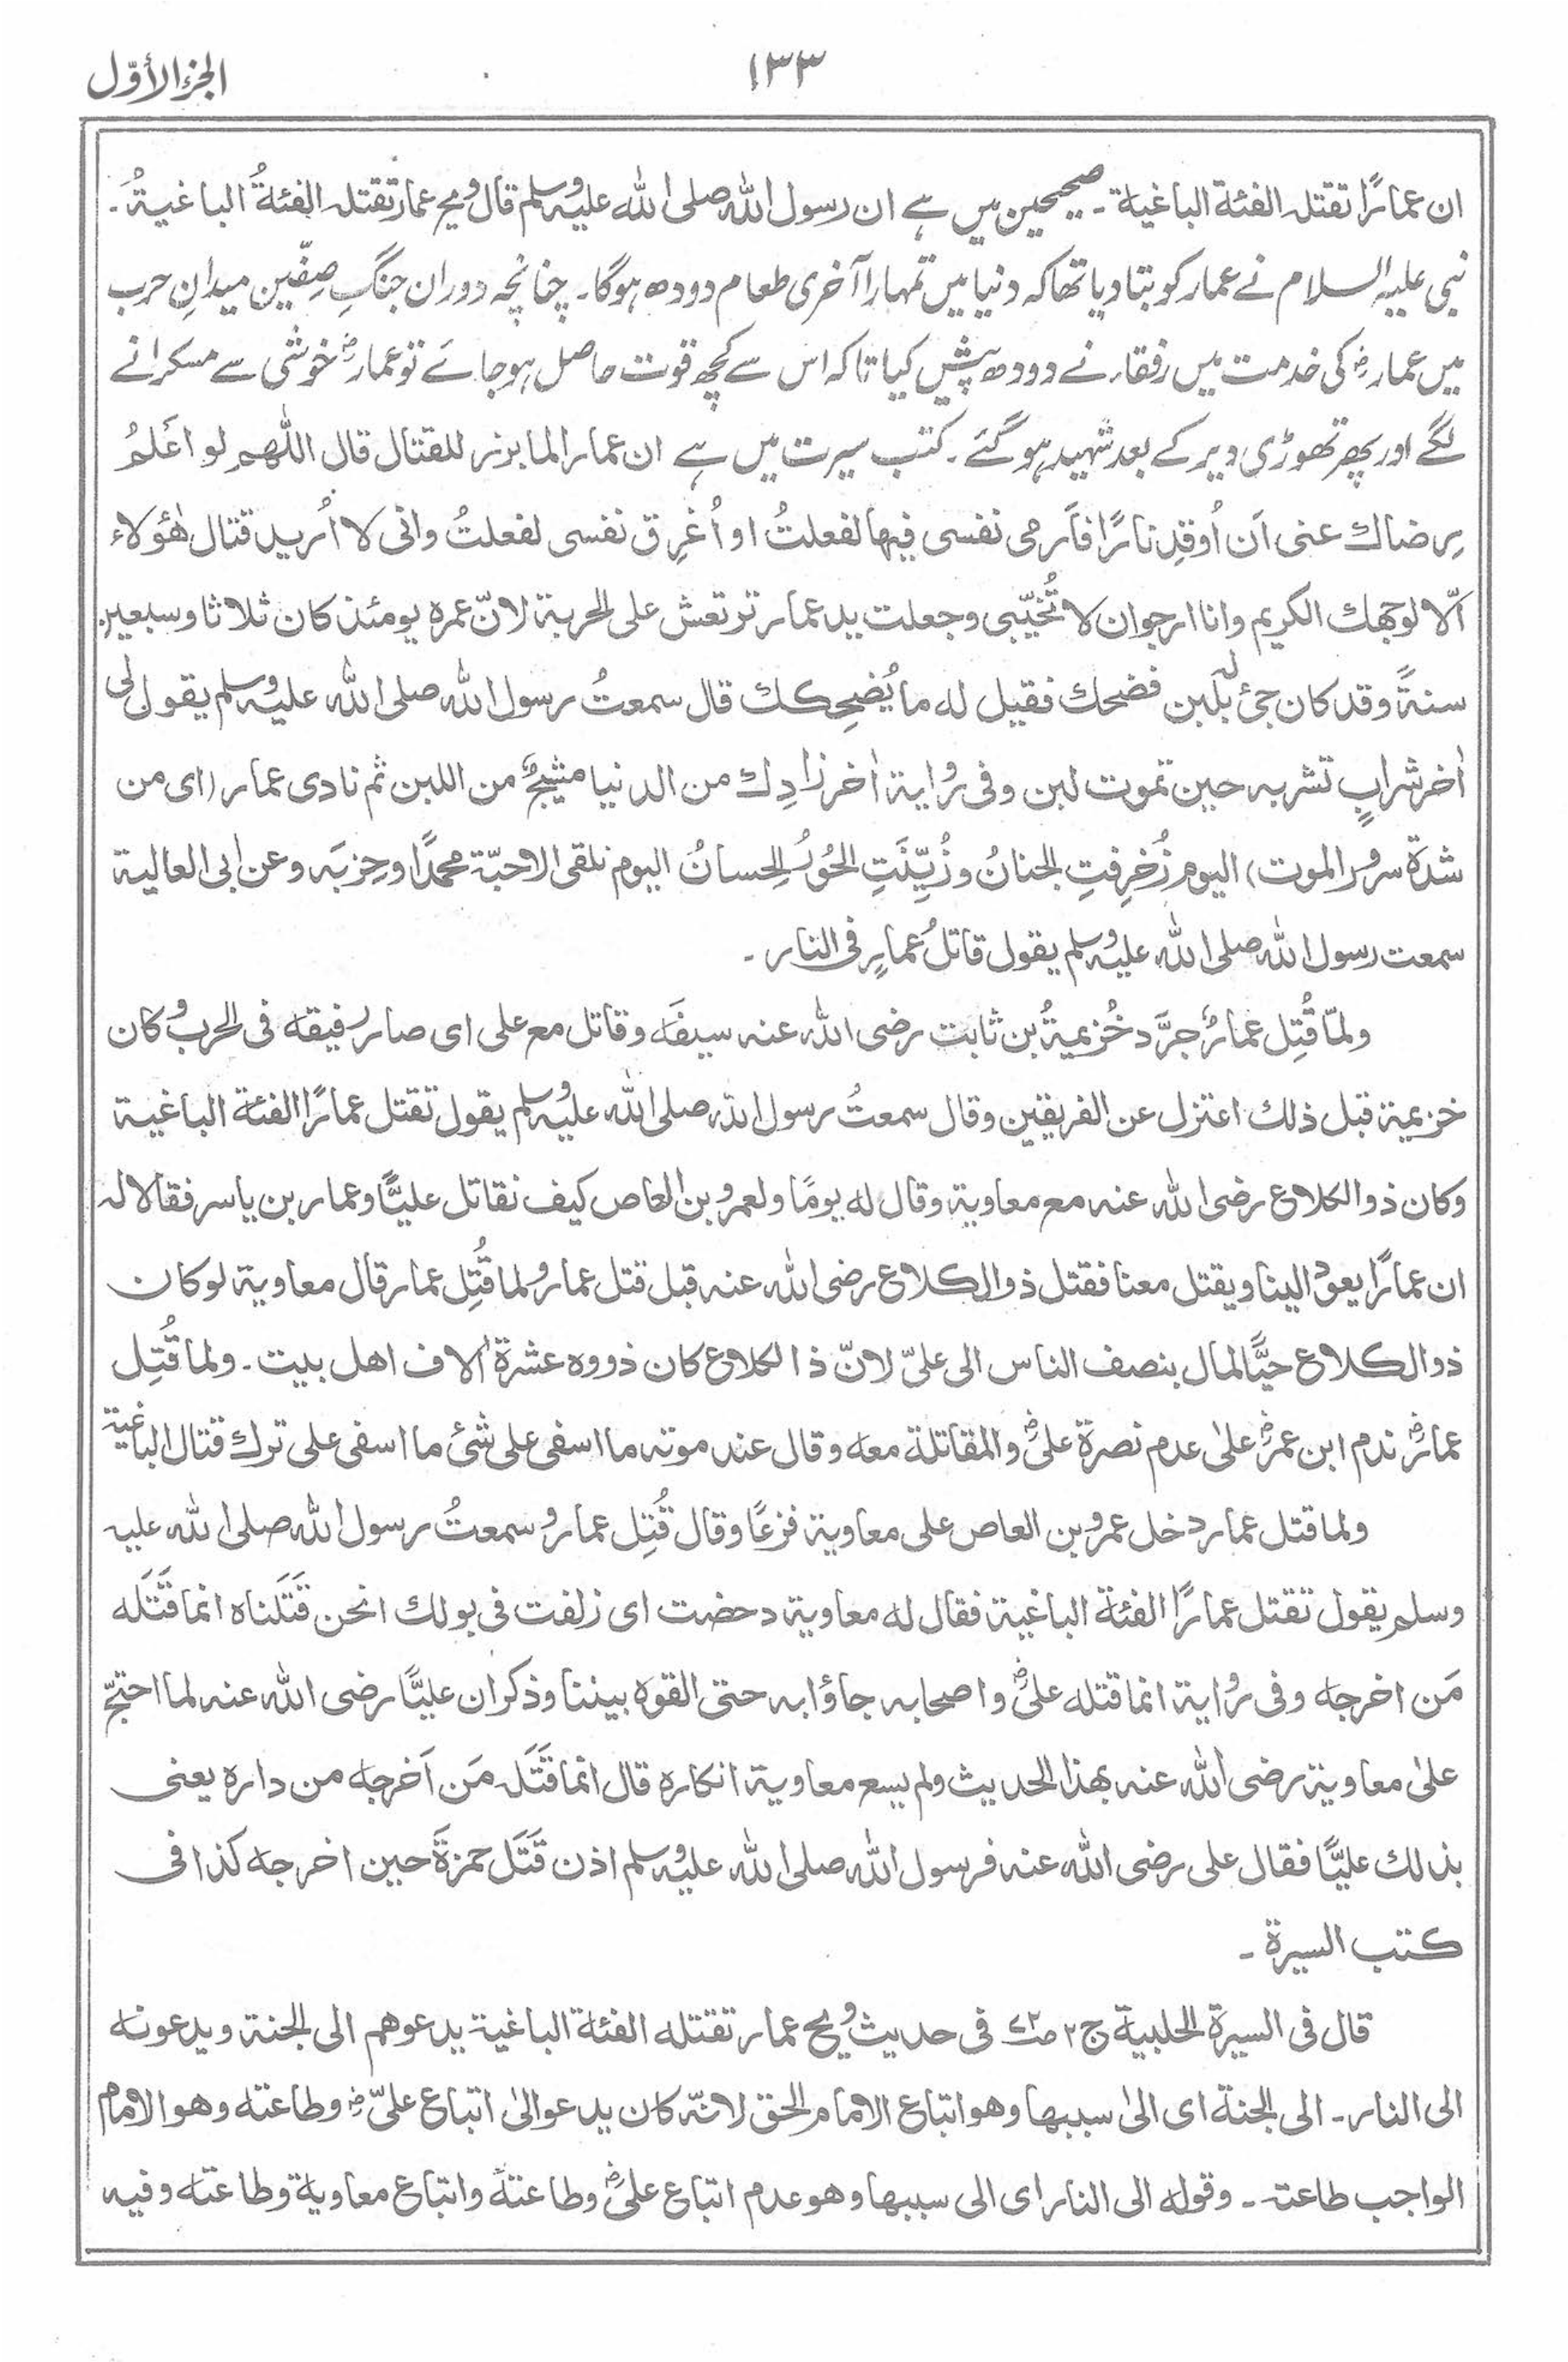 الجزء الأوّل
١٣٣
ان عمارًا تقتله الفئة الباغية ۔ صحیحین میں ہے ان رسول الله صلى الله عليه وسلم قال ويح عمار تقتله الفئةُ الباغيةُ ۔
نبی علیہ السلام نے عمار کو بتا دیا تھا کہ دنیا میں تمہارا آخری طعام دودھ ہوگا۔ چنانچہ دوران جنگِ صِفّین میدانِ حرب
میں عمارؓ کی خدمت میں رفقاء نے دودھ پیش کیا تاکہ اس سے کچھ قوت حاصل ہو جائے تو عمارؓ خوشی سے مسکرانے
لگے اور پھر تھوڑی دیر کے بعد شہید ہو گئے ۔ کتب سیرت میں ہے ان عمارا لما برز للقتال قال اللّٰهم لو اَعلمُ
رِضاك عنى اَن اُوقِد نارًا فاَرمى نفسى فيها لفعلتُ او اُغرِق نفسى لفعلتُ وانى لا اُريد قتال هٰؤلاء
اَلّا لوجهك الكريم وانا ارجو ان لا تُخيّبنى وجعلت يد عمار ترتعش على الحربة لانّ عمره يومئذ كان ثلاثا وسبعين
سنةً وقد كان جئ له بلبن فضحك فقيل له ما يُضحِكك قال سمعتُ رسول الله صلى الله عليه وسلم يقول لى
اٰخر شرابٍ تشربه حين تموت لبن وفى رواية اٰخر زادِك من الدنيا مشيجٌ من اللبن ثم نادى عمار (اى من
شدة سرور الموت) اليوم زُخرِفتِ الجنانُ وزُيِّنَتِ الحُورُ الحِسانُ اليوم نلقى الاحبّة محمدًا وحِزبَه وعن ابى العالية
سمعت رسول الله صلى الله عليه وسلم يقول قاتلُ عمارٍ فى النار ۔
ولمّا قُتِل عمارٌ جرَّد خُزيمةُ بن ثابت رضى الله عنه سيفَه وقاتل مع على اى صار رفيقه فى الحرب وكان
خزيمة قبل ذلك اعتزل عن الفريقين وقال سمعتُ رسول الله صلى الله عليه وسلم يقول تقتل عمارًا الفئة الباغية
وكان ذو الكلاع رضى الله عنه مع معاوية وقال له يومًا ولعمرو بن العاص كيف نقاتل عليًّا وعمار بن ياسر فقالا له
ان عمارًا يعود الينا ويقتل معنا فقتل ذو الكلاع رضى الله عنه قبل قتل عمار ولما قُتِل عمار قال معاوية لو كان
ذو الكلاع حيًّا لمال بنصف الناس الى علىّ لانّ ذا الكلاع كان ذووه عشرة اٰلاف اهل بيت ۔ ولما قُتِل
عمارؓ ندم ابن عمرؓ علىٰ عدم نصرة علىؓ والمقاتلة معه وقال عند موته ما اسفى على شئ ما اسفى على ترك قتال الباغية
ولما قتل عمار دخل عمرو بن العاص على معاوية فزعًا وقال قُتِل عمار وسمعتُ رسول الله صلى الله عليه
وسلم يقول تقتل عمارًا الفئة الباغية فقال له معاوية دحضت اى زلفت فى بولك انحن قَتَلناه انما قَتَلَه
مَن اخرجه وفى رواية انما قتله علىؓ واصحابه جاؤا به حتى القوه بيننا وذكر ان عليًّا رضى الله عنه لما احتجّ
علىٰ معاوية رضى الله عنه بهذا الحديث ولم يسع معاوية انكاره قال انما قَتَلَه مَن اَخرجه من داره يعنى
بذلك عليًّا فقال على رضى الله عنه فرسول الله صلى الله عليه وسلم اذن قَتَل حمزةَ حين اخرجه كذا فى
كتب السيرة ۔
قال فى السيرة الحلبية ج٢ فى حديث ويح عمار تقتله الفئة الباغية يدعوهم الى الجنة ويدعونه
الى النار ۔ الى الجنة اى الىٰ سببها وهو اتباع الامام الحق لانّه كان يدعو الىٰ اتباع علىّؓ وطاعته وهو الامام
الواجب طاعته ۔ وقوله الى النار اى الى سببها وهو عدم اتباع علىؓ وطاعته واتباع معاوية وطاعته وفيه